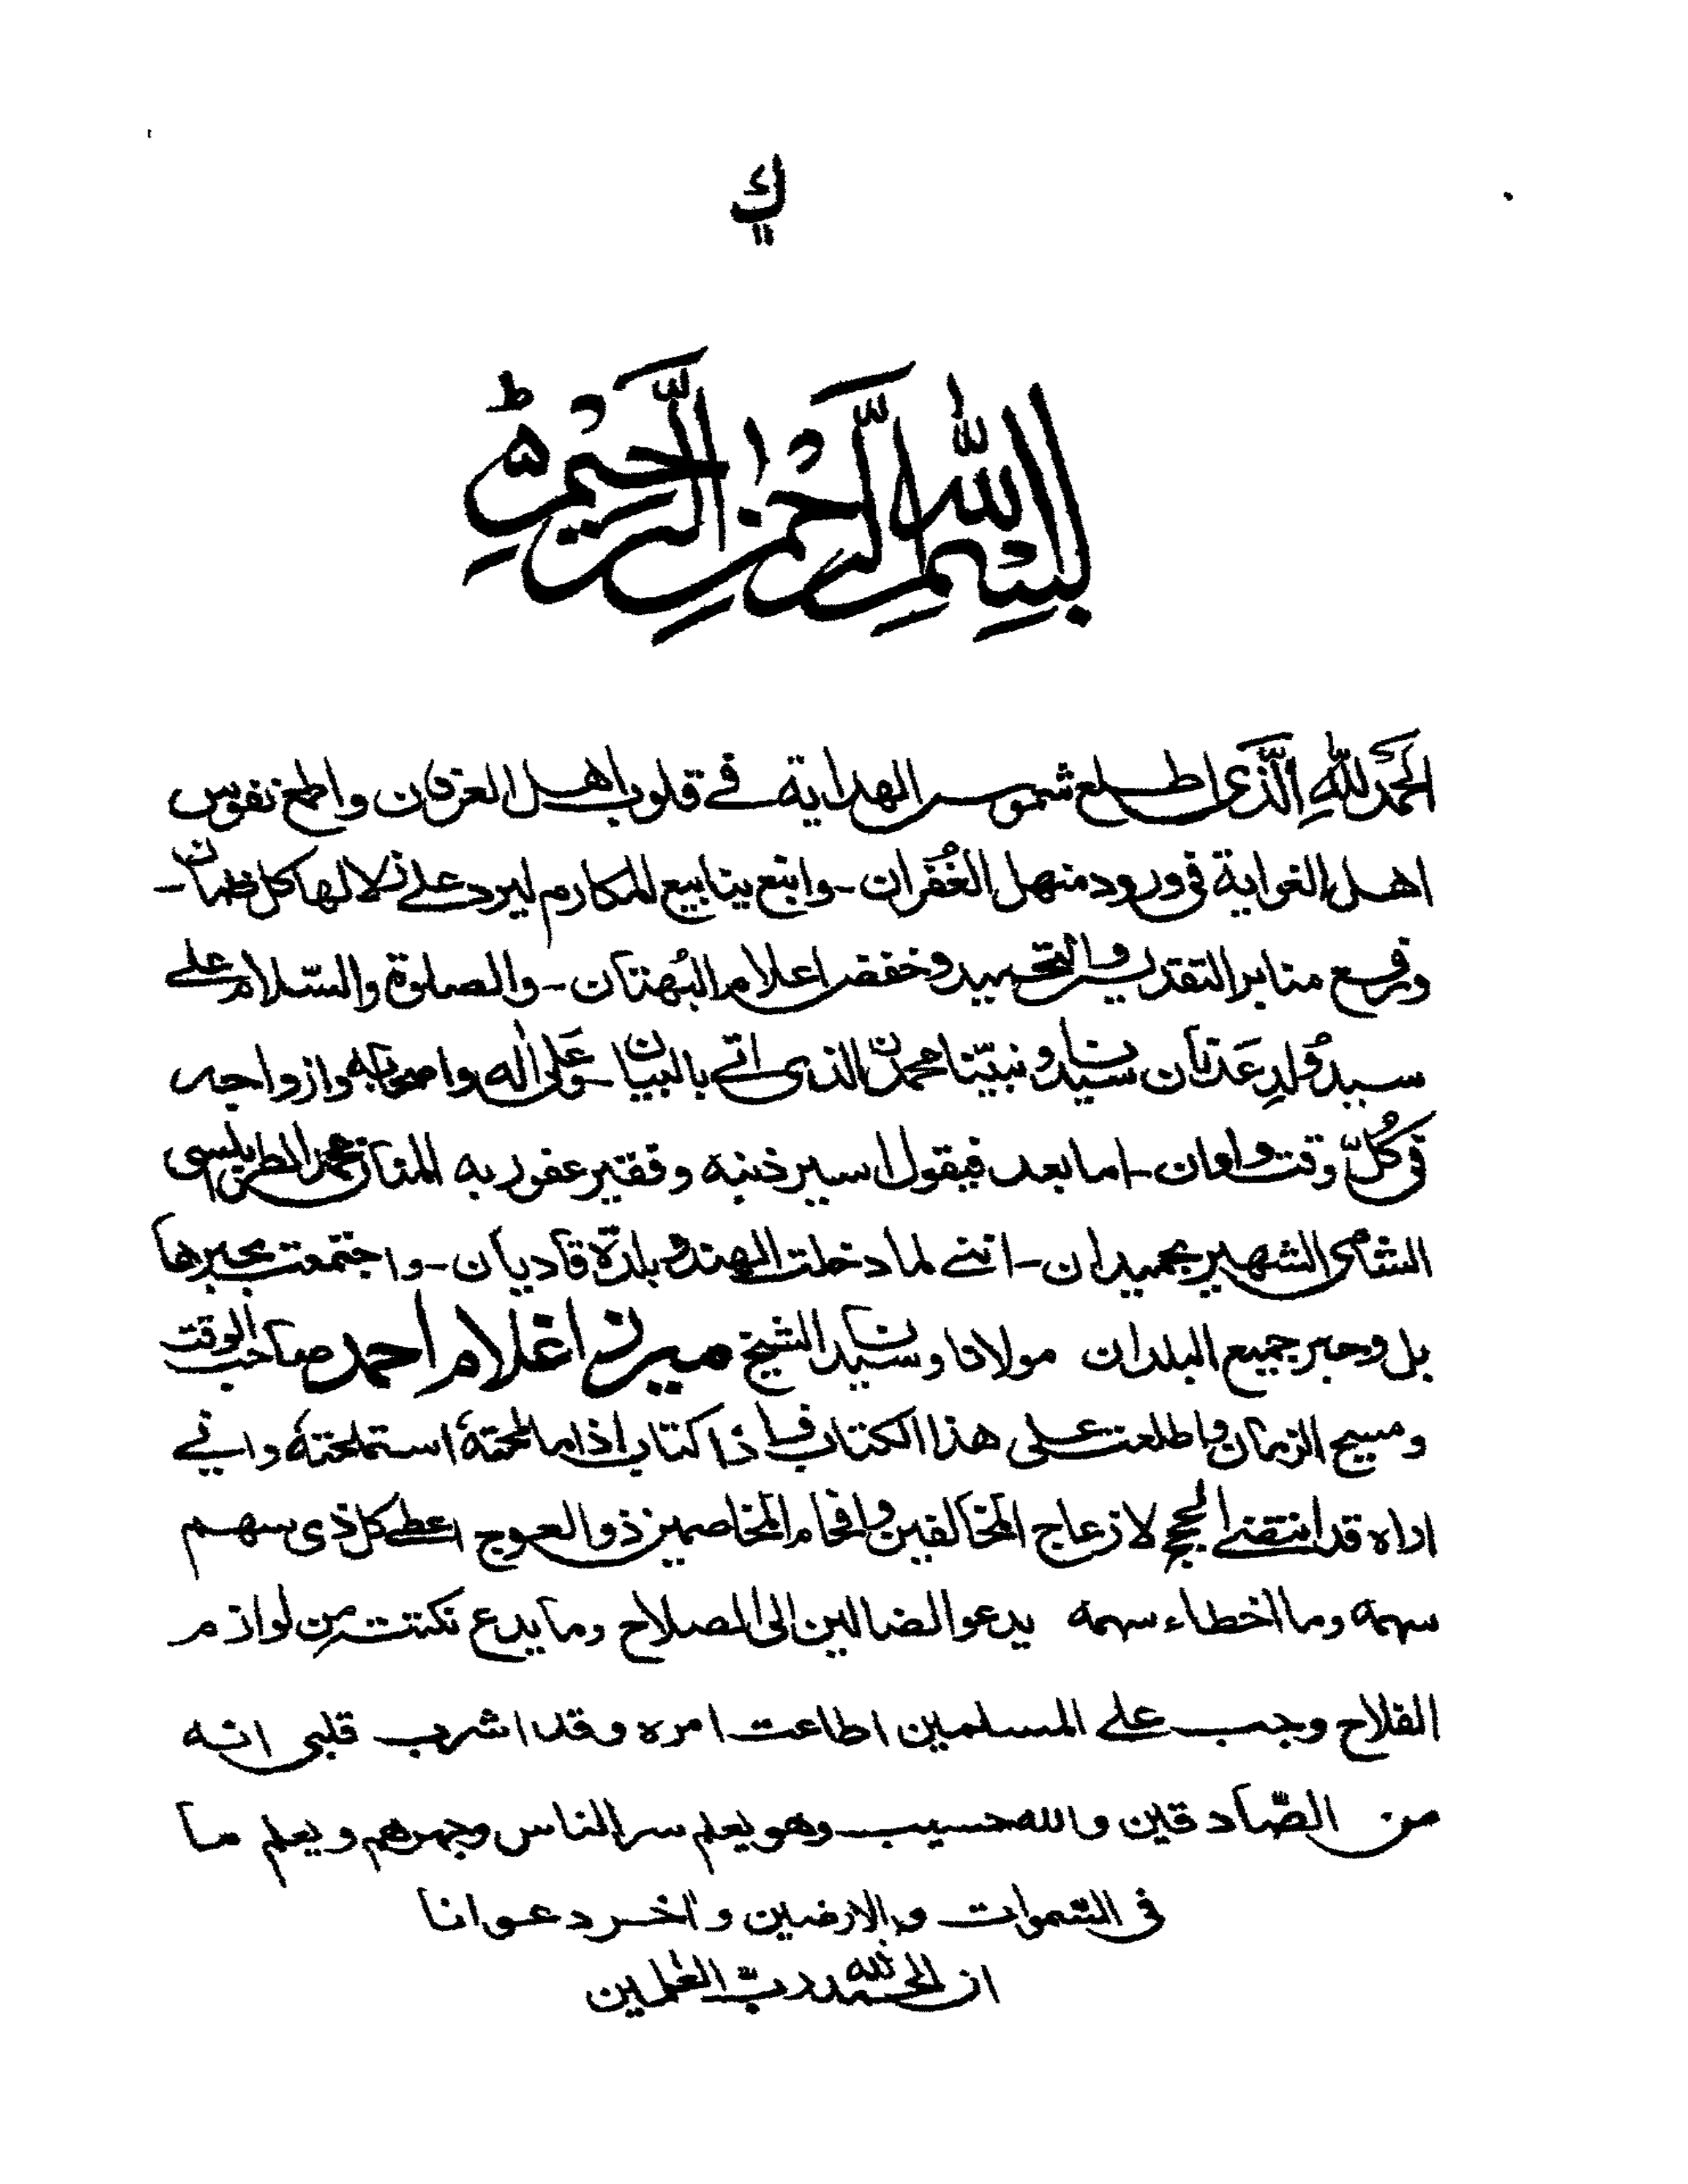 ك
بِسْمِ اللّٰهِ الرَّحْمٰنِ الرَّحِيْمِ ط
الحَمْدُ لِلّٰهِ الَّذى اطلع شموس الهداية فے قلوب اهل العرفان واطمع نفوس
اهل الغواية فى ورود منهل الغُفران - وانبع ينابيع المكارم ليرد علے زلالها كل ظمآن -
ورفع منابر التقديس والتحميد وخفض اعلام البُهتان - والصلوة والسّلام علے
سيد وُلدِ عَدنان سيدنا ونبيّنا محمدن الذى اتے بالبيان - وعَلى اٰله واصحابه وازواجه
فى كُلّ وقت واوان - اما بعد فيقول اسير ذنبه وفقير عفو ربه المنان محمد الطرابلسى
الشامى الشهير بحميدان - اننے لما دخلت الهند وبلدّة قاديان - واجتمعت بحبرها
بل وحبر جميع البلدان مولانا وسيدنا الشيخ ميرزا غلام احمد صاحب الوقت
ومسيح الزمان واطلعت على هذا الكتاب فاذا كتاب اذا ما لمحتهٗ استملحتهٗ وانے
اراه قد انتضے الحجج لازعاج المخالفين وافحام المخاصمين ذو العوج اعطے كل ذى سهم
سهمه وما اخطاء سهمه يدعو الضالين الى الصلاح وما يدع نكتت من لوازم
الفلاح وجب علے المسلمين اطاعت امره وقد اشرب قلبى انه
من الصّادقين والله حسيب وهو يعلم سر الناس وجهرهم ويعلم ما
فى السّموات والارضين واٰخر دعوانا
ان الحمد لله ربّ العٰلمين